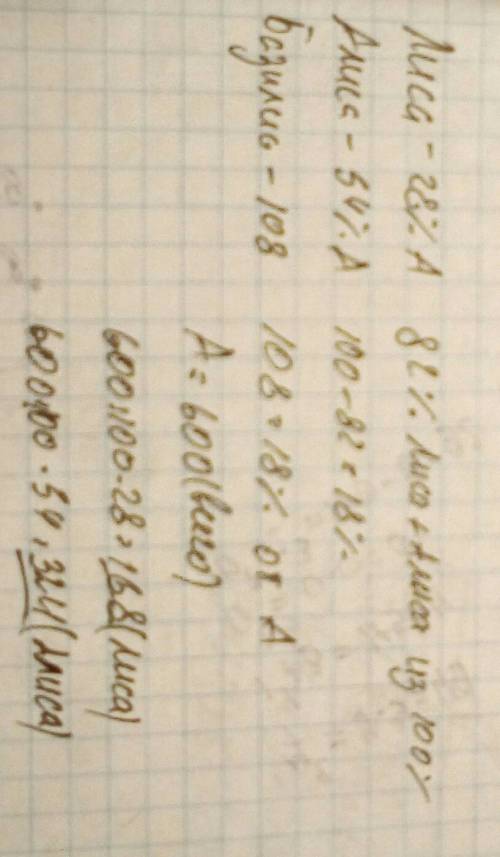 Лиса - 28% А 82% лиса + Алиса из 100%
Алиса - 54% А 100 - 82 = 18%
Базилио - 108 108 = 18% от А
А = 600 (всего)
600:100·28 = 168 (лиса)
600:100·54 = 324 (Алиса)